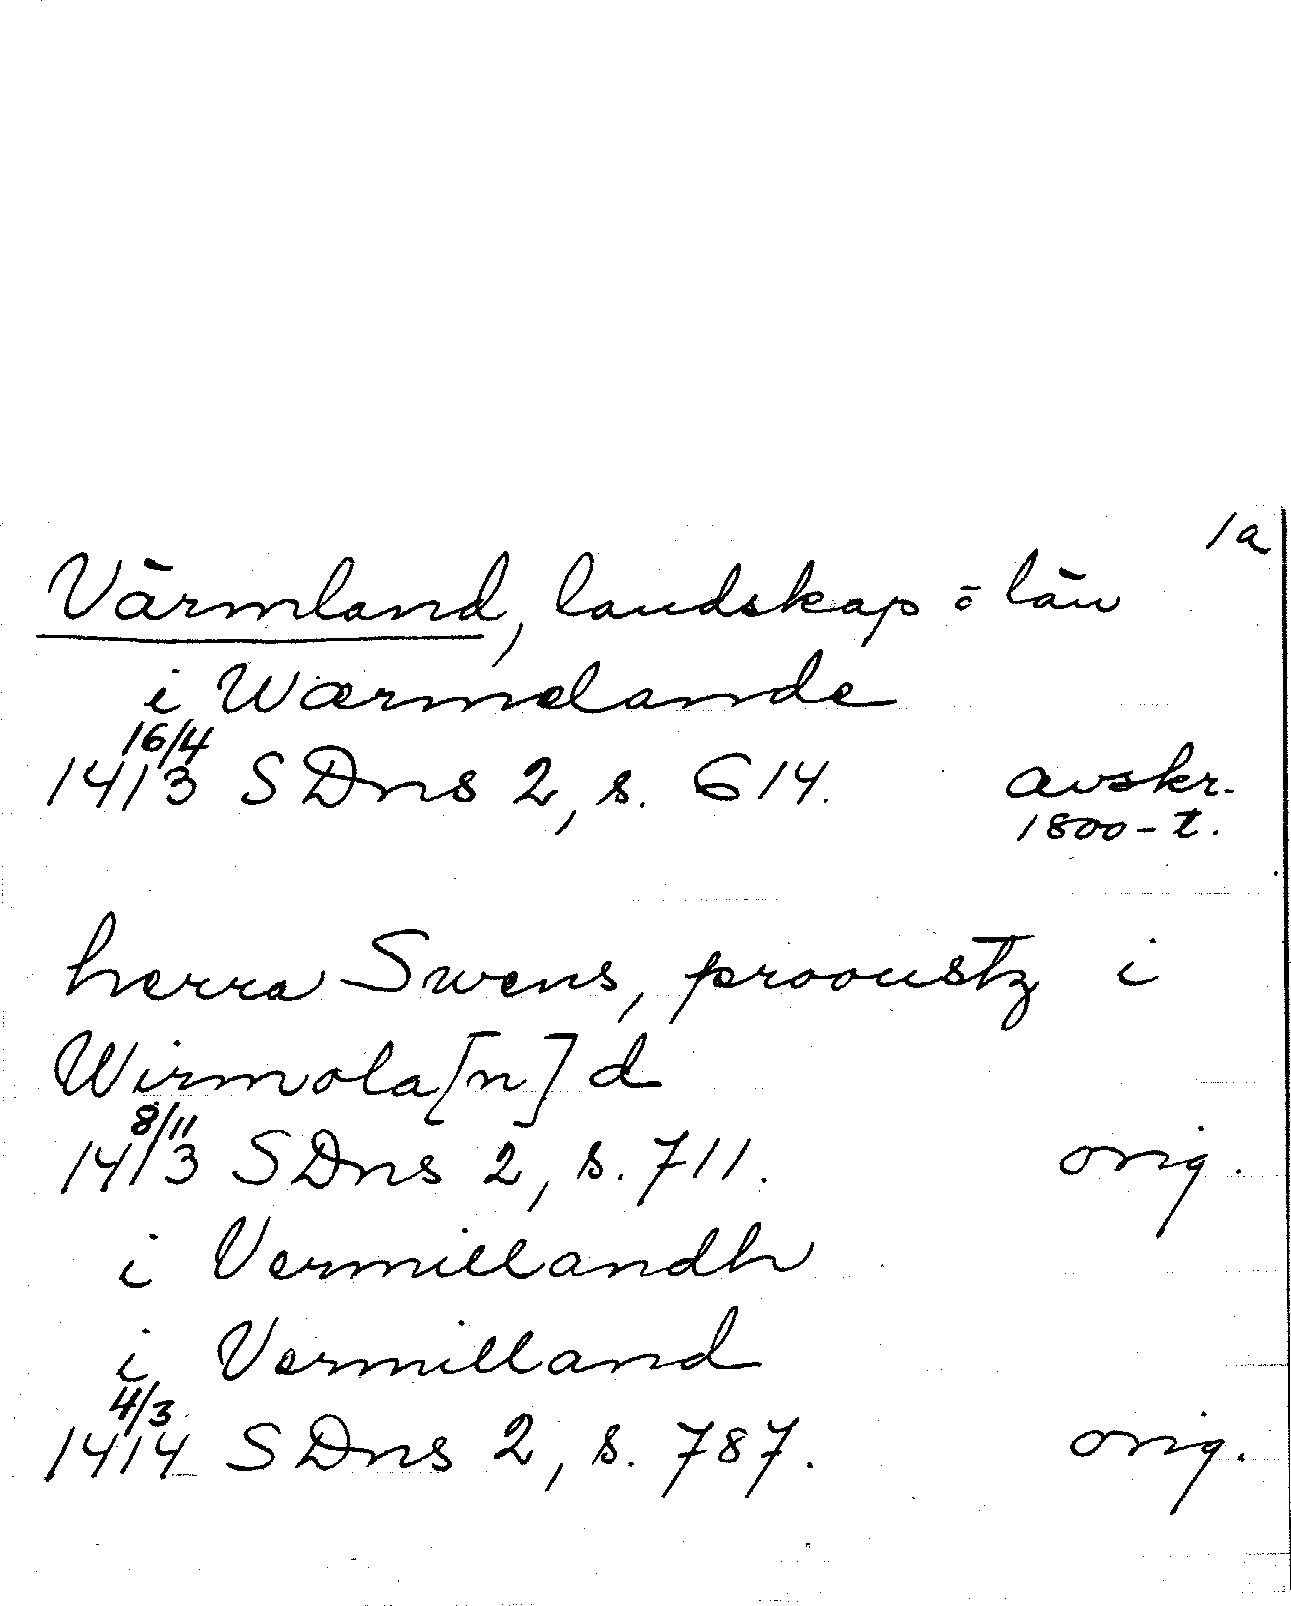 1a
Värmland, landskap o län
i Wærmelande
16/4
1413 SDns 2, s. 614. avskr.
1800-t.
herra Swens, prooustz i
Wirmola[n]d
8/11
1413 SDns 2, s. 711. orig.
i Vermillandh
i Vermilland
4/3
1414 SDns 2, s. 787. orig.